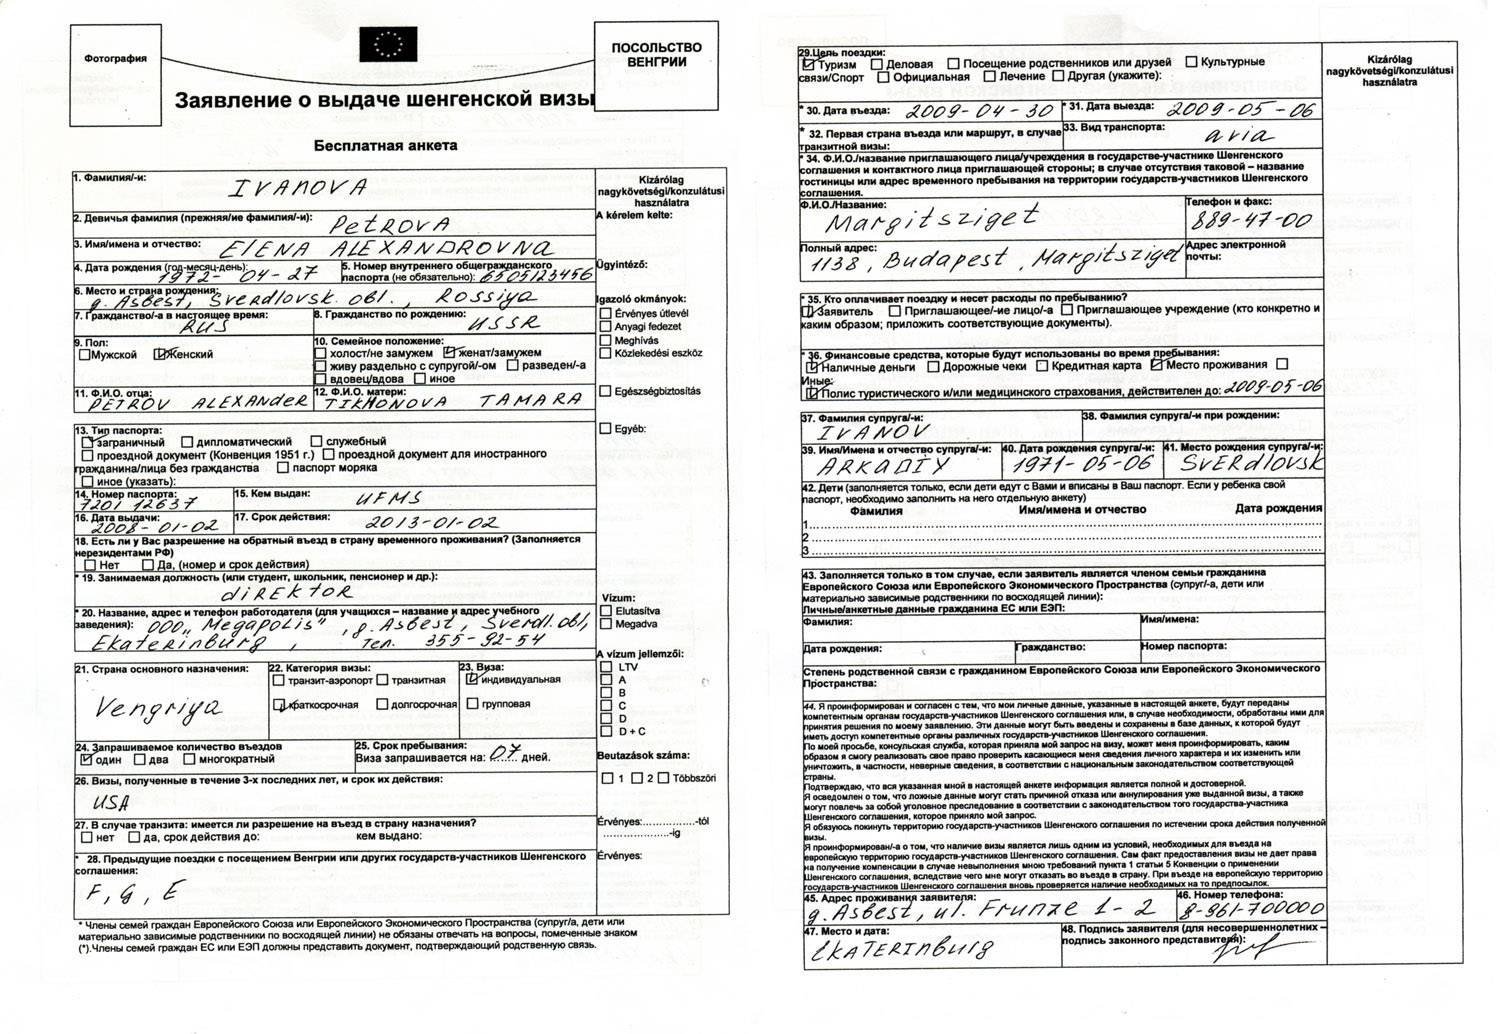 Фотография
ПОСОЛЬСТВО
ВЕНГРИИ
Заявление о выдаче шенгенской визы
Бесплатная анкета
1. Фамилия/-и:
IVANOVA
2. Девичья фамилия (прежняя/ие фамилия/-и):
PETROVA
3. Имя/имена и отчество:
ELENA ALEXANDROVNA
4. Дата рождения (год-месяц-день):
1972- 04-27
5. Номер внутреннего общегражданского
паспорта (не обязательно): 6505123456
6. Место и страна рождения:
g. Asbest, Sverdlovsk. obl., Rossiya
7. Гражданство/-а в настоящее время:
RUS
8. Гражданство по рождению:
USSR
9. Пол:
Мужской Женский
10. Семейное положение:
холост/не замужем женат/замужем
живу раздельно с супругой/-ом разведен/-а
вдовец/вдова иное
11. Ф.И.О. отца:
PETROV ALEXANDER
12. Ф.И.О. матери:
TIKHONOVA TAMARA
13. Тип паспорта:
заграничный дипломатический служебный
проездной документ (Конвенция 1951 г.) проездной документ для иностранного
гражданина/лица без гражданства паспорт моряка
иное (указать):
14. Номер паспорта:
7201 12637
15. Кем выдан: UFMS
16. Дата выдачи:
2008-01-02
17. Срок действия: 2013-01-02
18. Есть ли у Вас разрешение на обратный въезд в страну временного проживания? (Заполняется
нерезидентами РФ)
Нет Да, (номер и срок действия)
* 19. Занимаемая должность (или студент, школьник, пенсионер и др.):
direktor
* 20. Название, адрес и телефон работодателя (для учащихся – название и адрес учебного
заведения): ООО „Megapolis", g. Asbest, Sverdl. obl,
Ekaterinburg, тел. 355-92-54
21. Страна основного назначения:
Vengriya
22. Категория визы:
транзит-аэропорт транзитная
краткосрочная долгосрочная
23. Виза:
индивидуальная
групповая
24. Запрашиваемое количество въездов
один два многократный
25. Срок пребывания:
Виза запрашивается на: 07 дней.
26. Визы, полученные в течение 3-х последних лет, и срок их действия:
USA
27. В случае транзита: имеется ли разрешение на въезд в страну назначения?
нет да, срок действия до: кем выдано:
* 28. Предыдущие поездки с посещением Венгрии или других государств-участников Шенгенского
соглашения:
F, g, E
* Члены семей граждан Европейского Союза или Европейского Экономического Пространства (супруг/а, дети или
материально зависимые родственники по восходящей линии) не обязаны отвечать на вопросы, помеченные знаком
(*).Члены семей граждан ЕС или ЕЭП должны представить документ, подтверждающий родственную связь.
Kizárólag
nagykövetségi/konzulátusi
használatra
A kérelem kelte:
Ügyintéző:
Igazoló okmányok:
Érvényes útlevél
Anyagi fedezet
Meghívás
Közlekedési eszköz
Egészségbiztosítás
Egyéb:
Vízum:
Elutasítva
Megadva
A vízum jellemzői:
LTV
A
B
C
D
D + C
Beutazások száma:
1 2 Többszöri
Érvényes:................-tól
....................-ig
Érvényes:
29.Цель поездки:
Туризм Деловая Посещение родственников или друзей Культурные
связи/Спорт Официальная Лечение Другая (укажите):
* 30. Дата въезда: 2009-04-30
* 31. Дата выезда: 2009-05-06
* 32. Первая страна въезда или маршрут, в случае
транзитной визы:
33. Вид транспорта:
avia
* 34. Ф.И.О./название приглашающего лица/учреждения в государстве-участнике Шенгенского
соглашения и контактного лица приглашающей стороны; в случае отсутствия таковой – название
гостиницы или адрес временного пребывания на территории государств-участников Шенгенского
соглашения.
Ф.И.О./Название:
Margitsziget
Телефон и факс:
889-47-00
Полный адрес:
1138, Budapest, Margitsziget
Адрес электронной
почты:
* 35. Кто оплачивает поездку и несет расходы по пребыванию?
Заявитель Приглашающее/-ие лицо/-а Приглашающее учреждение (кто конкретно и
каким образом; приложить соответствующие документы).
* 36. Финансовые средства, которые будут использованы во время пребывания:
Наличные деньги Дорожные чеки Кредитная карта Место проживания
Иные:
Полис туристического и/или медицинского страхования, действителен до: 2009-05-06
37. Фамилия супруга/-и:
IVANOV
38. Фамилия супруга/-и при рождении:
39. Имя/Имена и отчество супруга/-и:
ARKADIY
40. Дата рождения супруга/-и:
1971-05-06
41. Место рождения супруга/-и:
Sverdlovsk
42. Дети (заполняется только, если дети едут с Вами и вписаны в Ваш паспорт. Если у ребенка свой
паспорт, необходимо заполнить на него отдельную анкету)
Фамилия Имя/имена и отчество Дата рождения
1
2
3
43. Заполняется только в том случае, если заявитель является членом семьи гражданина
Европейского Союза или Европейского Экономического Пространства (супруг/-а, дети или
материально зависимые родственники по восходящей линии):
Личные/анкетные данные гражданина ЕС или ЕЭП:
Фамилия: Имя/имена:
Дата рождения: Гражданство: Номер паспорта:
Степень родственной связи с гражданином Европейского Союза или Европейского Экономического
Пространства:
44. Я проинформирован и согласен с тем, что мои личные данные, указанные в настоящей анкете, будут переданы
компетентным органам государств-участников Шенгенского соглашения или, в случае необходимости, обработаны ими для
принятия решения по моему заявлению. Эти данные могут быть введены и сохранены в базе данных, к которой будут
иметь доступ компетентные органы различных государств-участников Шенгенского соглашения.
По моей просьбе, консульская служба, которая приняла мой запрос на визу, может меня проинформировать, каким
образом я смогу реализовать свое право проверить касающиеся меня сведения личного характера и их изменить или
уничтожить, в частности, неверные сведения, в соответствии с национальным законодательством соответствующей
страны.
Подтверждаю, что вся указанная мной в настоящей анкете информация является полной и достоверной.
Я осведомлен о том, что ложные данные могут стать причиной отказа или аннулирования уже выданной визы, а также
могут повлечь за собой уголовное преследование в соответствии с законодательством того государства-участника
Шенгенского соглашения, которое приняло мой запрос.
Я обязуюсь покинуть территорию государств-участников Шенгенского соглашения по истечении срока действия полученной
визы.
Я проинформирован/-а о том, что наличие визы является лишь одним из условий, необходимых для въезда на
европейскую территорию государств-участников Шенгенского соглашения. Сам факт предоставления визы не дает права
на получение компенсации в случае невыполнения мною требований пункта 1 статьи 5 Конвенции о применении
Шенгенского соглашения, вследствие чего мне могут отказать во въезде в страну. При въезде на европейскую территорию
государств-участников Шенгенского соглашения вновь проверяется наличие необходимых на то предпосылок.
45. Адрес проживания заявителя:
g. Asbest, ul. Frunze 1-2
46. Номер телефона:
8-961-700000
47. Место и дата:
Ekaterinburg
48. Подпись заявителя (для несовершеннолетних –
подпись законного представителя):
Kizárólag
nagykövetségi/konzulátusi
használatra